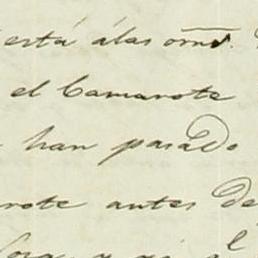 está álas orns.
el Camarote
han pasado
rote antes de